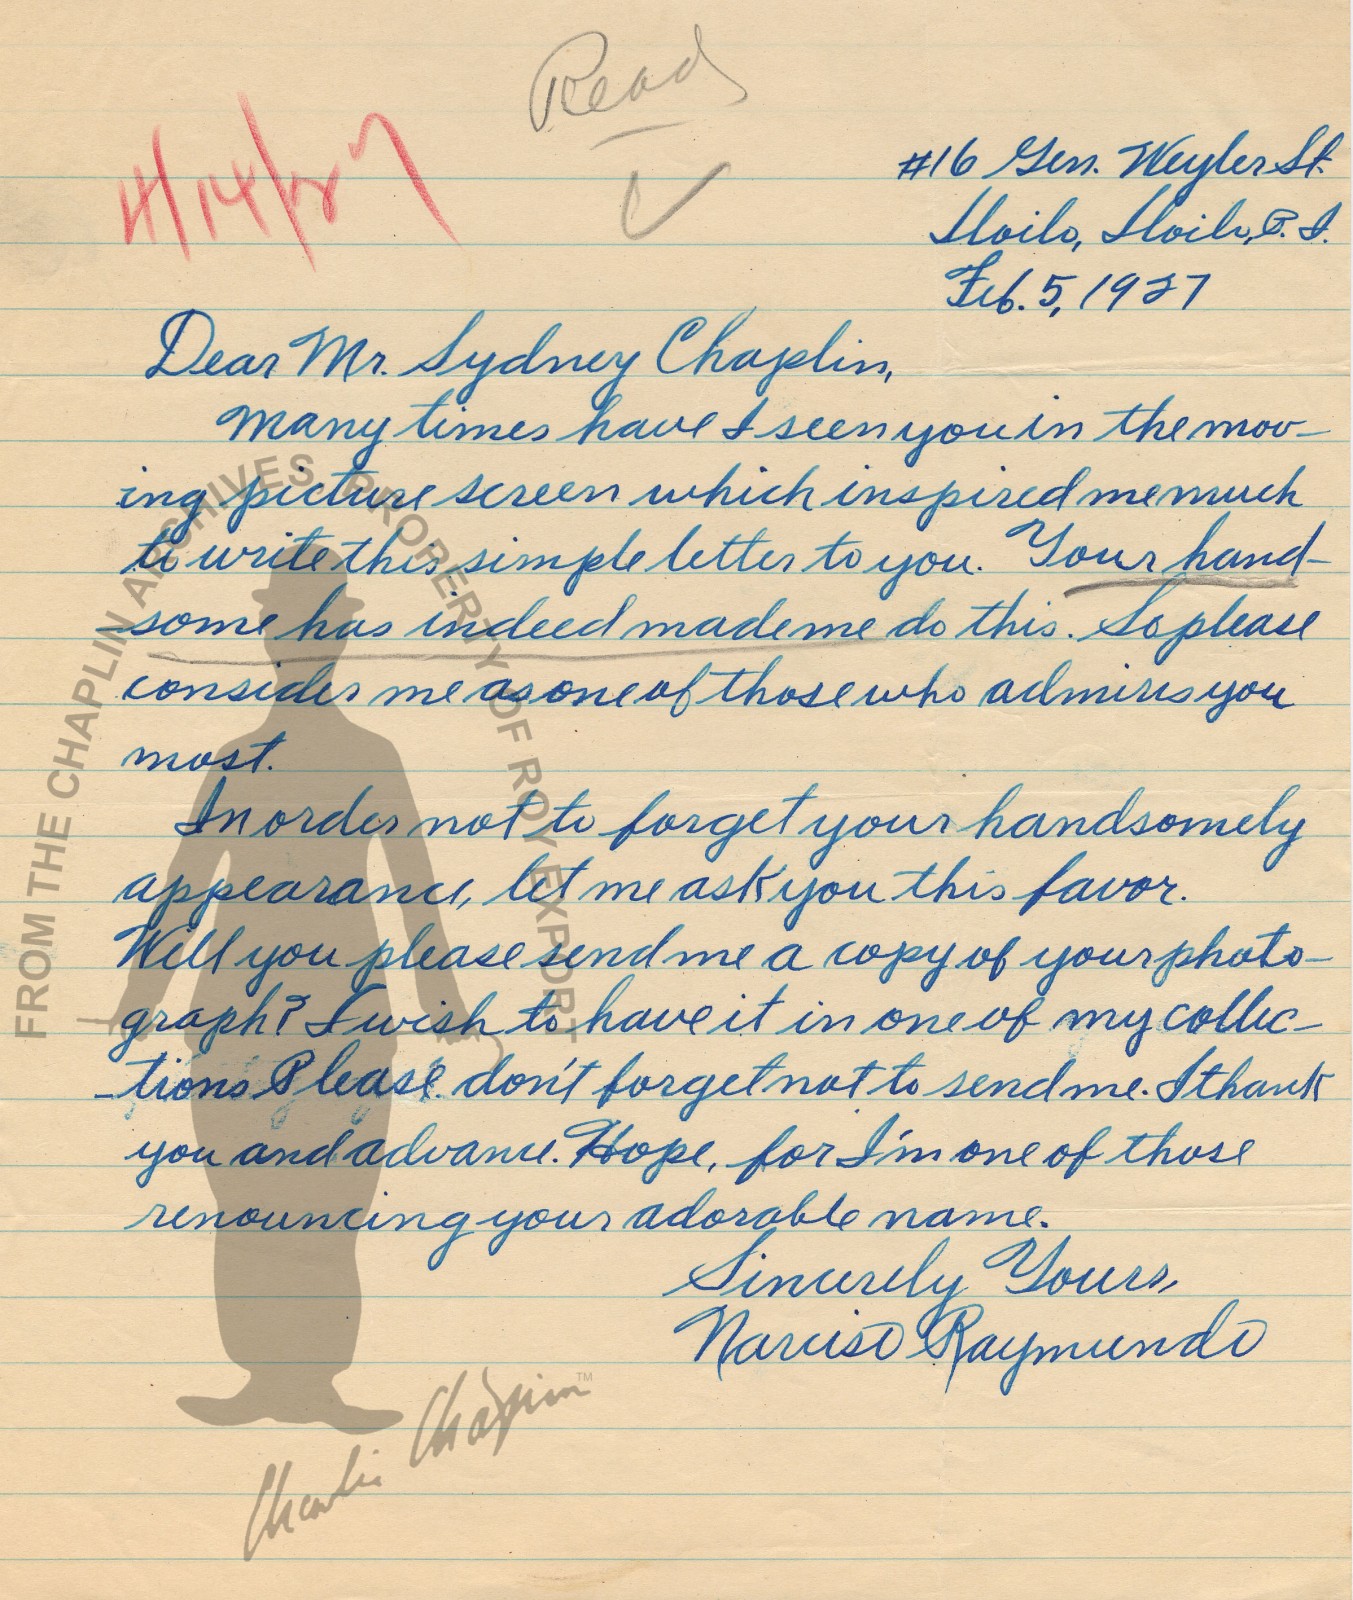 Read
4/14/27
#16 Gen. Weyler St.
Iloilo, Iloilo, P. I.
Feb. 5, 1927
Dear Mr. Sydney Chaplin,
Many times have I seen you in the mov-
ing picture screen which inspired me much
to write this simple letter to you. Your hand-
some has indeed made me do this. So please
consider me as one of those who admires you
most.
In order not to forget your handsomely
appearance, let me ask you this favor.
Will you please send me a copy of your photo-
graph? I wish to have it in one of my collec-
tions. Please don't forget not to send me. I thank
you and advance. Hope, for I'm one of those
renouncing your adorable name.
Sincerely Yours,
Narciso Raymundo
FROM THE CHAPLIN ARCHIVES, PRORERTY OF ROY EXPORT
Charlie Chaplin™